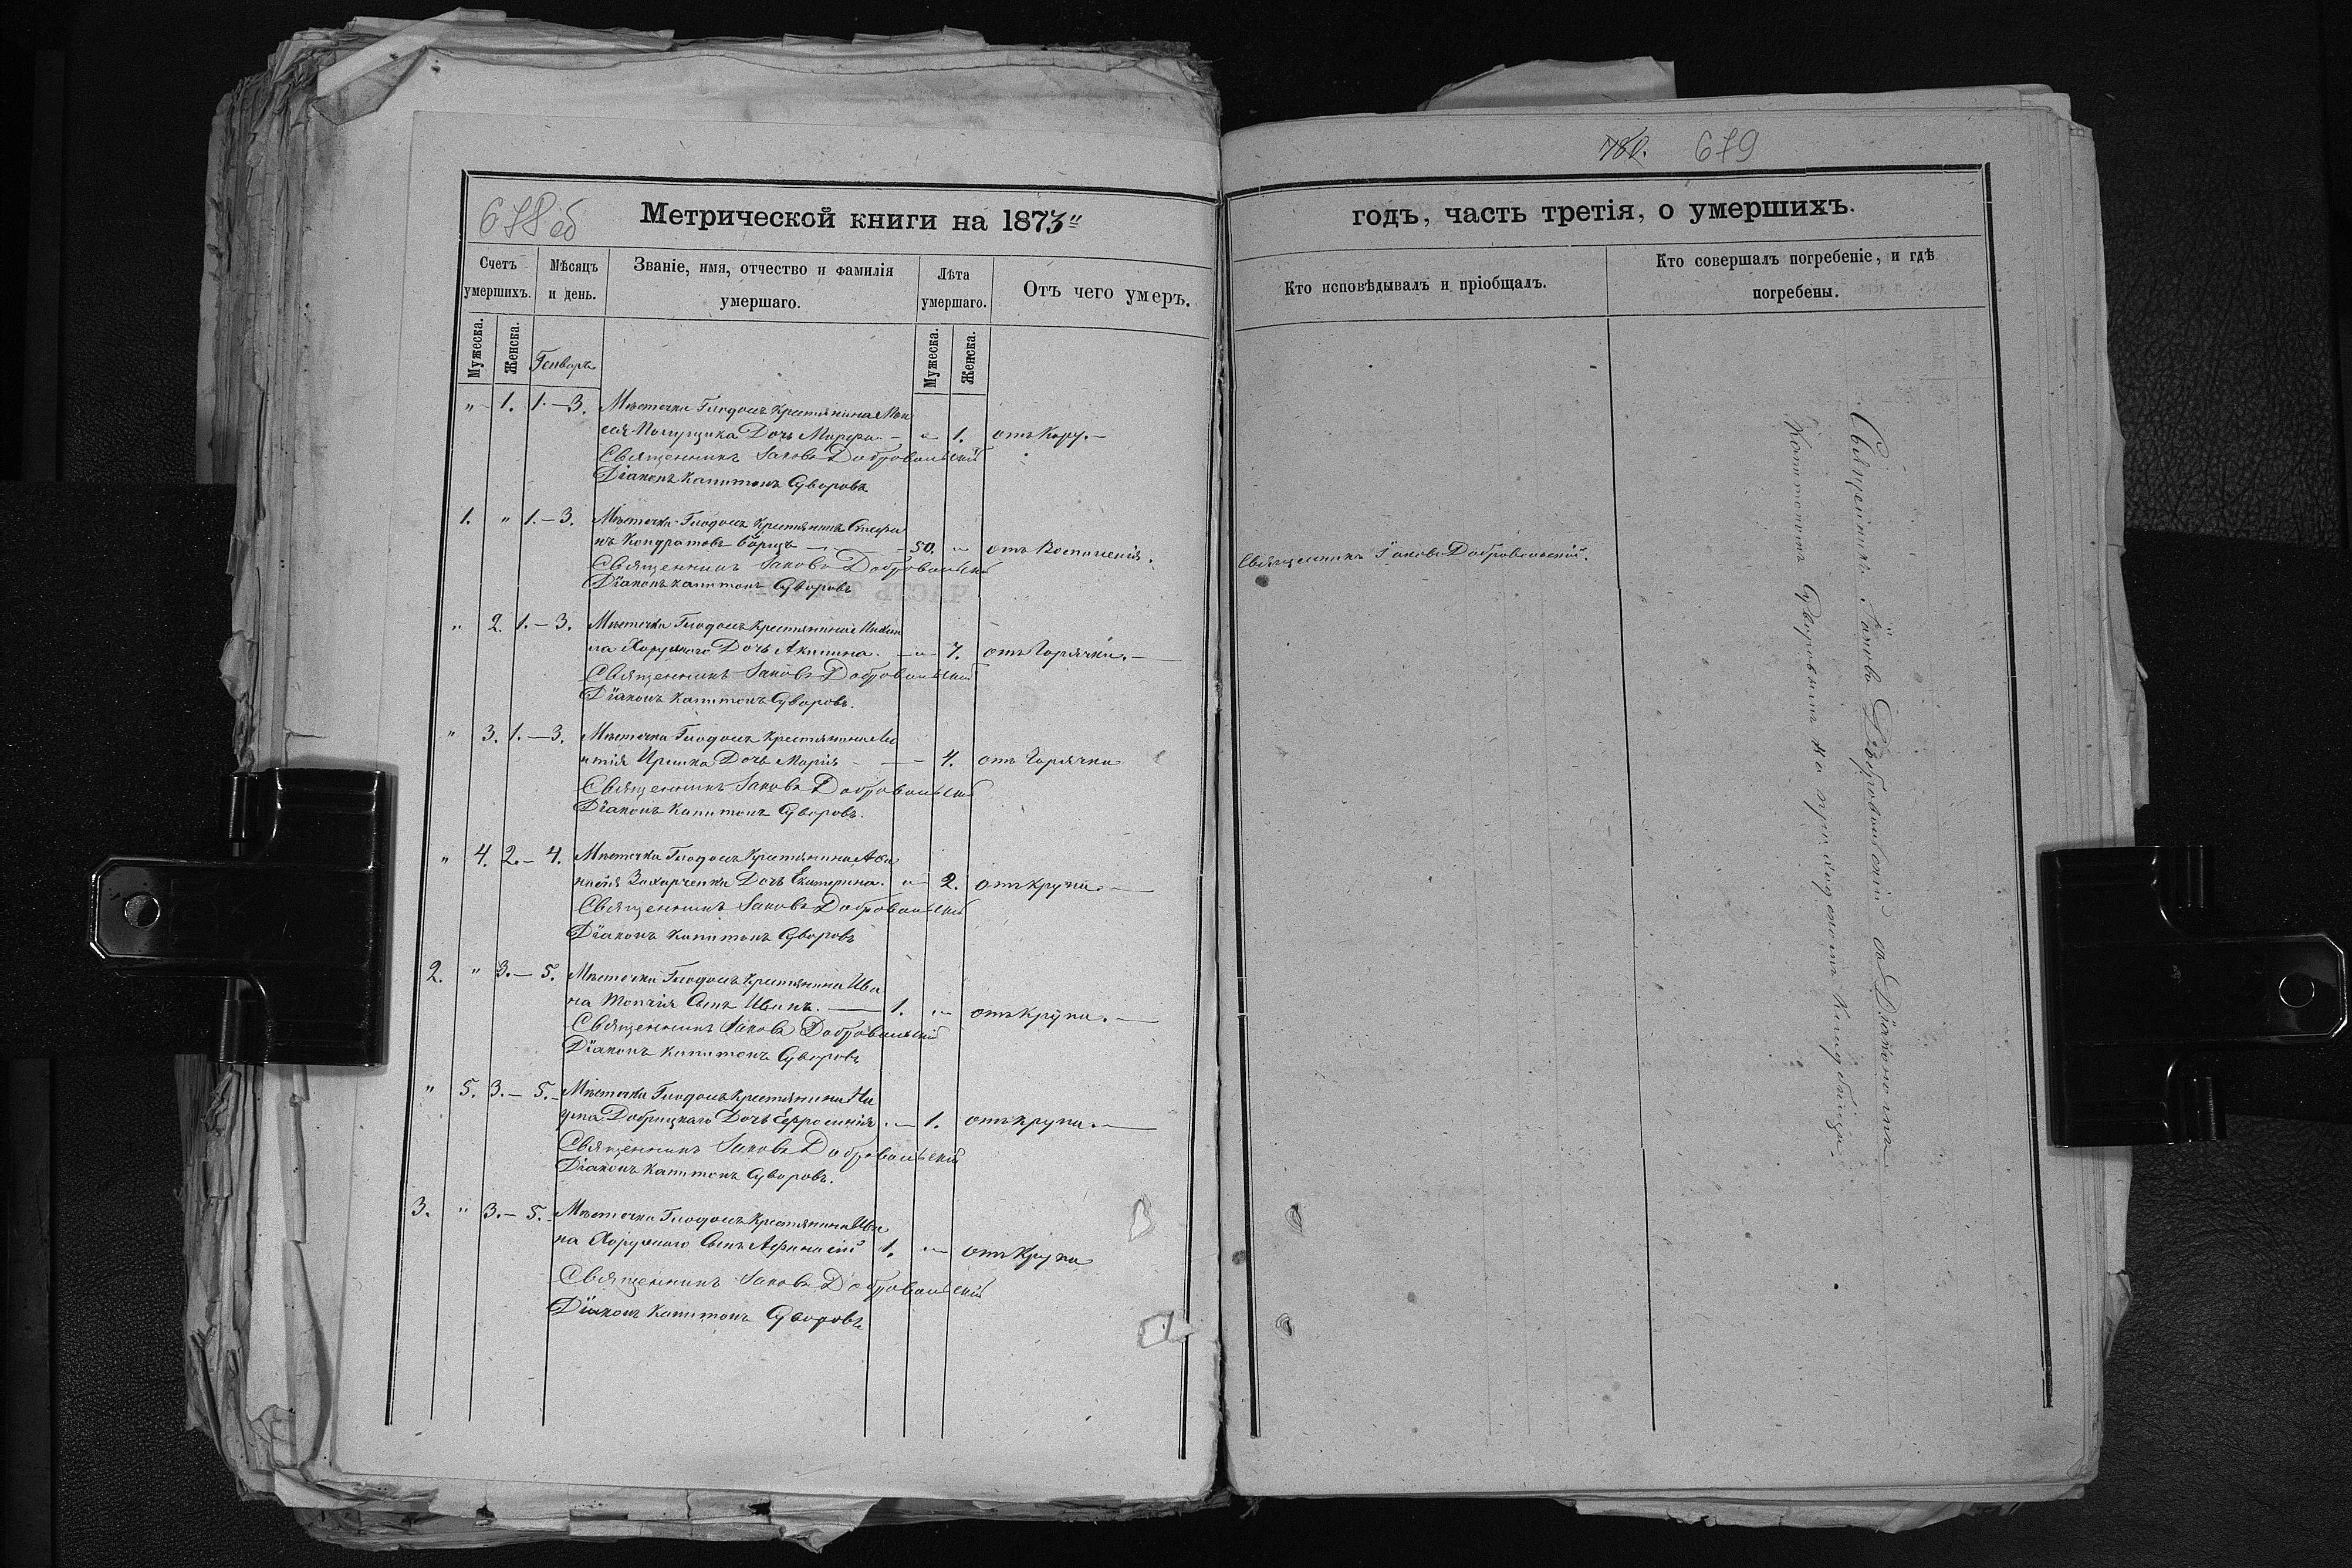 678 об
Метрической книги на 1873"
Счетъ умершихъ.
Мѣсяцъ и день.
Званіе, имя, отчество и фамилія умершаго.
Лѣта умершаго.
Отъ чего умеръ.
Мужеска.
Женска.
Генварь
Мужеска.
Женска.
" 1. 1.—3. Мѣстечка Глодосъ Крестянина
Дочь Марѳа — " 1. отъ Кору.—
Священникъ Іаковъ Добровольскій
Діаконъ Капитонъ Суворовъ
1. " 1.—3. Мѣстечка Глодосъ Крестянинъ Стефа
нъ Кондратовъ — 50. " отъ Воспаленія.
Священникъ Іаковъ Добровольскій
Діаконъ Капитонъ Суворовъ
" 2. 1.—3. Мѣстечка Глодосъ Крестянина
Дочь Акилина. — " 7. отъ Горячки.—
Священникъ Іаковъ Добровольскій
Діаконъ Капитонъ Суворовъ.
" 3. 1.—3. Мѣстечка Глодосъ Крестянина
Дочь Марія — 4. отъ Горячки
Священникъ Іаковъ Добровольскій
Діаконъ Капитонъ Суворовъ.
" 4. 2.—4. Мѣстечка Глодосъ Крестянина Афа
насія Захарченка Дочь Екатерина. " 2. отъ крупа.—
Священникъ Іаковъ Добровольскій
Діаконъ Капитонъ Суворовъ
2. " 3.—5. Мѣстечка Глодосъ Крестянина Ива
на Топчія Сынъ Иванъ. — 1. " отъ крупа.—
Священникъ Іаковъ Добровольскій
Діаконъ Капитонъ Суворовъ
" 5. 3.—5. Мѣстечка Глодосъ Крестянина На
ума Добрицкаго Дочь Евфросинія. — 1. отъ крупа.—
Священникъ Іаковъ Добровольскій
Діаконъ Капитонъ Суворовъ.
3. " 3.—5. Мѣстечка Глодосъ Крестянина Ива
на Хорунжаго Сынъ Афанасій 1. " отъ Крупа
Священникъ Іаковъ Добровольскій
Діаконъ Капитонъ Суворовъ
679
годъ, часть третія, о умершихъ.
Кто исповѣдывалъ и пріобщалъ.
Кто совершалъ погребеніе, и гдѣ погребены.
Священникъ Іаковъ Добровольскій.
Священникъ Іаковъ Добровольскій съ Діакономъ
Капитономъ Суворовымъ на приходскомъ Кладбищѣ.